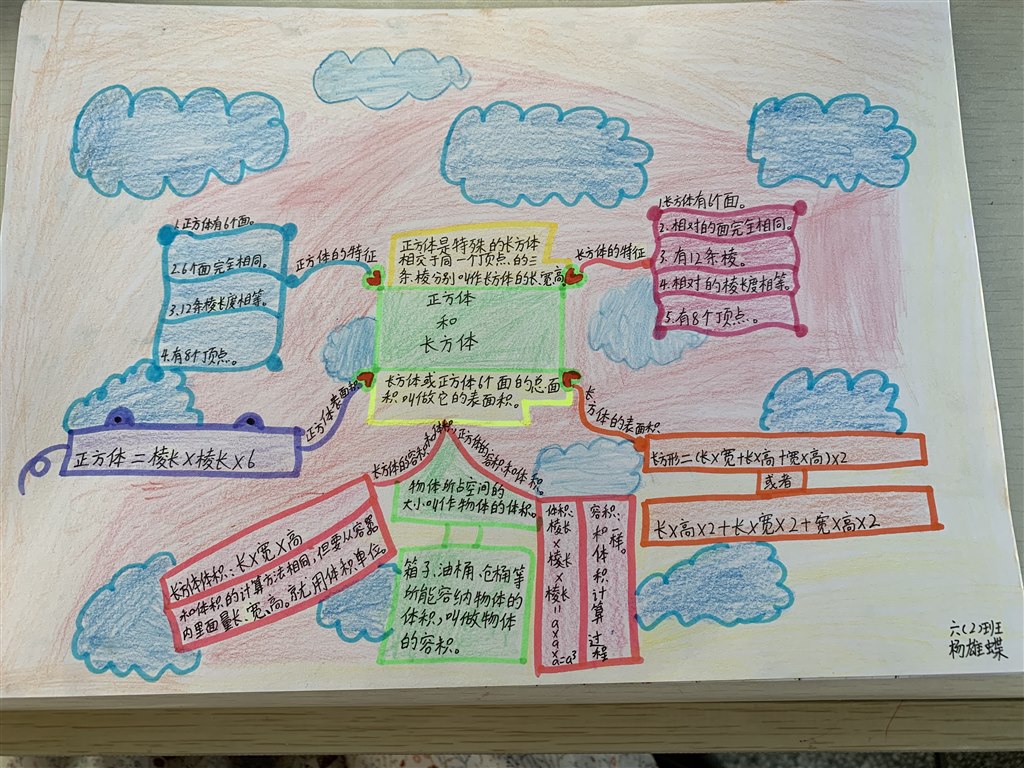 1.正方体有6个面。
2.6个面完全相同。
3.12条棱长度相等。
4.有8个顶点。
正方体的特征
正方体是特殊的长方体
相交于同一个顶点的三
条棱分别叫作长方体的长、宽、高
正方体
和
长方体
长方体或正方体6个面的总面
积叫做它的表面积。
长方体的特征
1.长方体有6个面。
2.相对的面完全相同。
3.有12条棱。
4.相对的棱长度相等。
5.有8个顶点。
正方体表面积
正方体=棱长×棱长×6
长方体的表面积
长方形=(长×宽+长×高+宽×高)×2
或者
长×高×2+长×宽×2+宽×高×2
长方体的容积和体积
正方体的容积和体积。
长方体体积:长×宽×高
和体积的计算方法相同,但要从容器
内里面量长、宽、高。就用体积单位。
物体所占空间的
大小叫作物体的体积。
箱子、油桶、仓桶等
所能容纳物体的
体积,叫做物体
的容积。
体积:棱长×棱长×棱长=a×a×a=a³
容积:和体积计算过程一样。
六(2)班
杨雄蝶